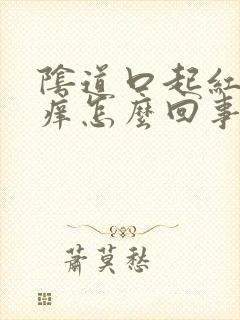 陰道口起紅
痒怎麽回事
蕭莫愁